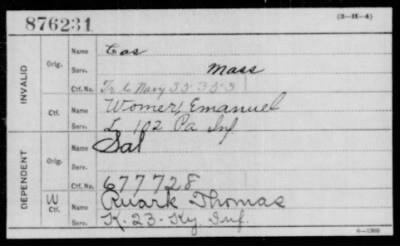 876231
(3-H-4)
INVALID
Orig.
Name Cos
Serv. Mass
Ctf. No. Tr to Navy 33333
Ctf.
Name Womer, Emanuel
Serv. L 102 Pa Inf
DEPENDENT
Orig.
Name Sal
Serv.
Ctf. No. 677728
W
Ctf.
Name Ruark Thomas
Serv. K-23-Ky Inf.